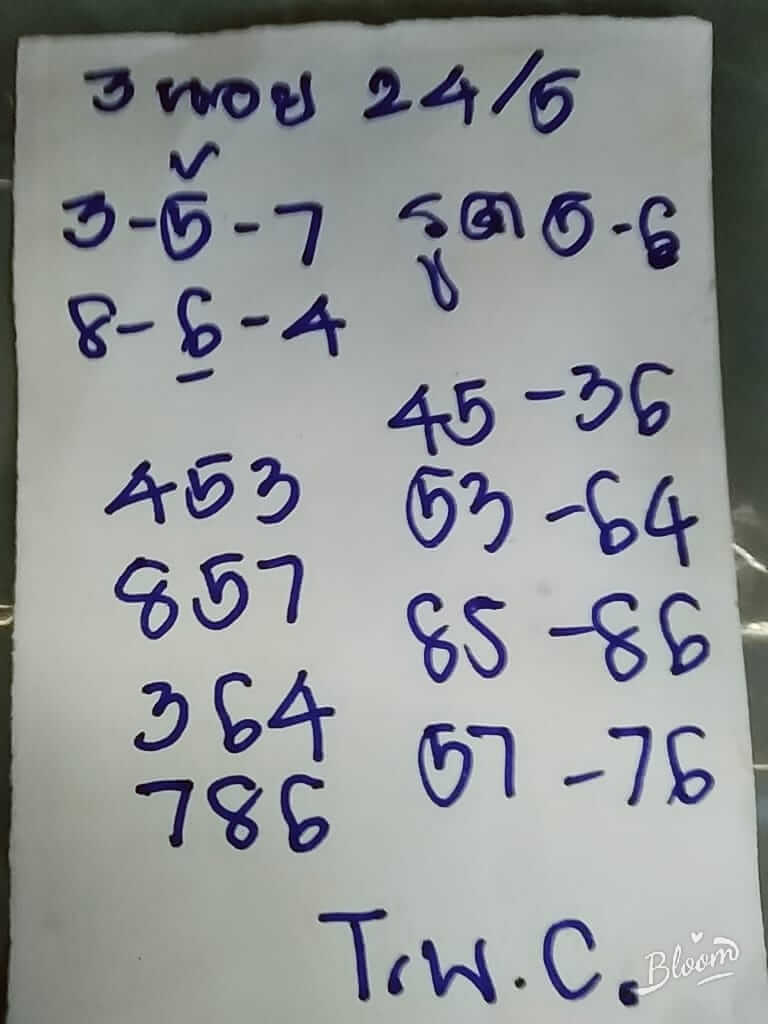 3 หอย 24/5
3-5-7 รูด 5-6
8-6-4
45-36
453 53-64
857 85-86
364
786 57-76
T.พ.C.
Bloom